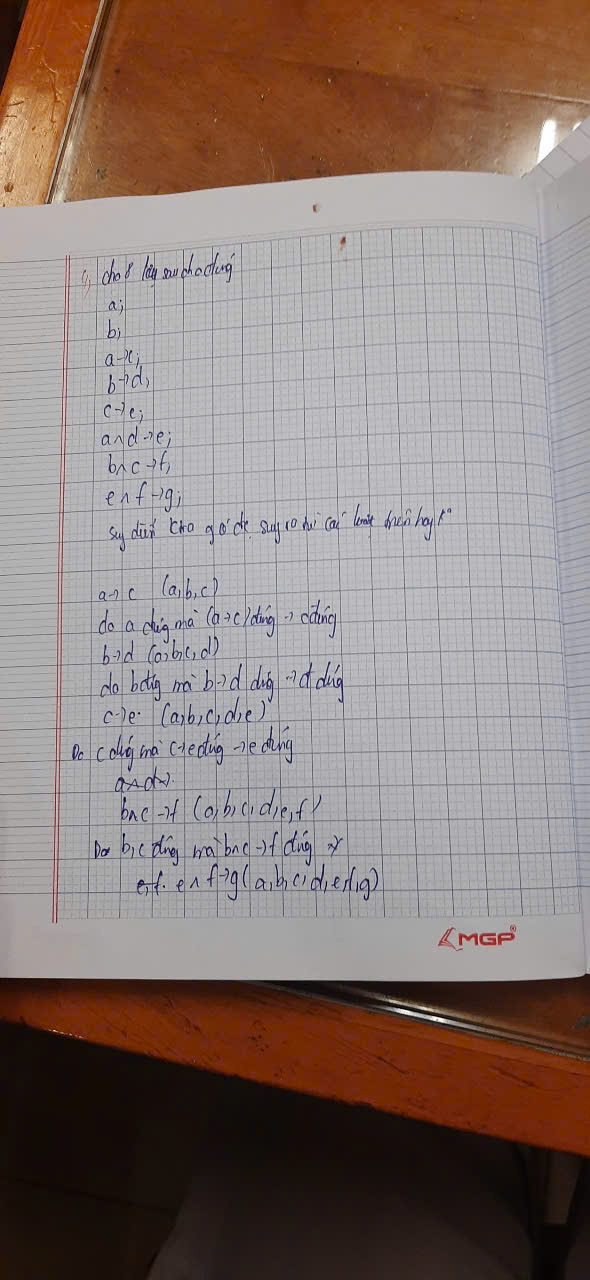 cho 8 sau cho đúng
a;
b;
a→c;
b→d;
c→e;
a∧d→e;
b∧c→f;
e∧f→g;
suy diễn g có suy ra từ các trên hay k°
a→c (a,b,c)
do a đúng mà (a→c) đúng → c đúng
b→d (a,b,c,d)
do b đúng mà b→d đúng → d đúng
c→e. (a,b,c,d,e)
Do c đúng mà c→e đúng → e đúng
a∧d→
b∧c→f (a,b,c,d,e,f)
Do b,c đúng mà b∧c→f đúng →
e,f. e∧f→g (a,b,c,d,e,f,g)
MGP